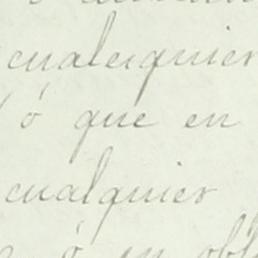 cualesquier
ó que en
cualquier
ó en obl